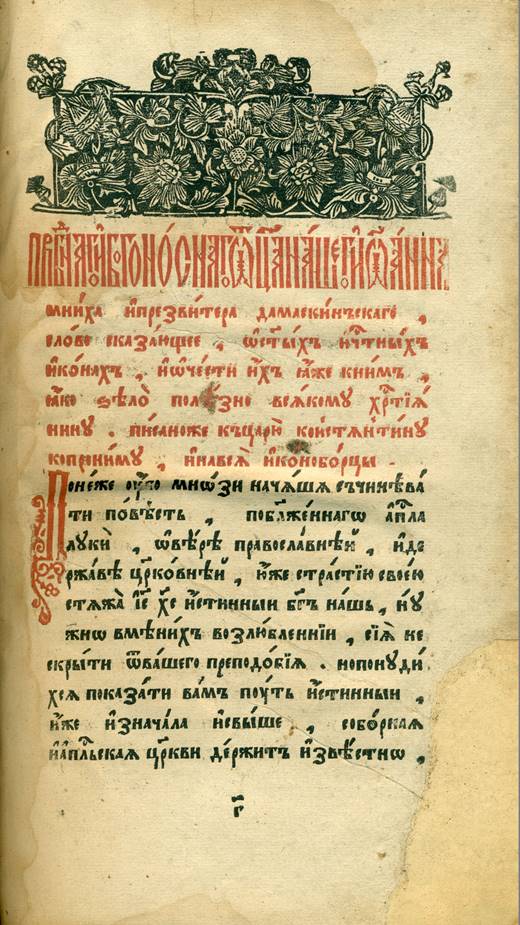 прпⷣбнаго и҆ бг҃оно́снаго ѿц҃а на́шего і҆ѡа́нна
мниха и҆презвитера дамаскинъскаго ,
слово сказа́ющее , ѡ҆ст҃ы́хъ и҆чⷭ҇тны́хъ
и҆ко́нахъ , и҆ѡ҆че́сти и҆́хъ є҆́аже кни́мъ ,
ꙗ҆́ко ѕѣлѡ̀ поле́зно всѧ́кому хрⷭ҇тїѧ́
нину . пи́саноже къцарю̀ ко́нстѧнти́ну
копрѡ́ниму , и҆навсѧ̀ и҆коноборцы .
Поне́же ᲂу҆́бо мнѡ́зи нача́шѧ съчинѣва́
ти по́вѣсть , побл҃же́ннагѡ а҆пⷭ҇ла
лꙋкѝ , ѡ҆вѣ́рѣ правосла́внѣй , и҆де
ржа́вѣ цр҃ко́внѣй , ю҆́же стра́стїю свое́ю
стѧжа̀ і҆с҃ хс҃ и҆́стинныи бг҃ъ на́шъ , нꙋ́
жнѡ вмѣни́хъ возлю́бленнїи , сїѧ̀ не
скры́ти ѿва́шего преподо́бїѧ . нопонꙋди́
хсѧ показа́ти ва́мъ пꙋ́ть и҆́стинныи ,
и҆́же и҆знача́ла и҆свы́ше , собо́рнаѧ
и҆а҆пⷭ҇льскаѧ цр҃кви де́ржитъ и҆звѣ́стнѡ ,
г҃